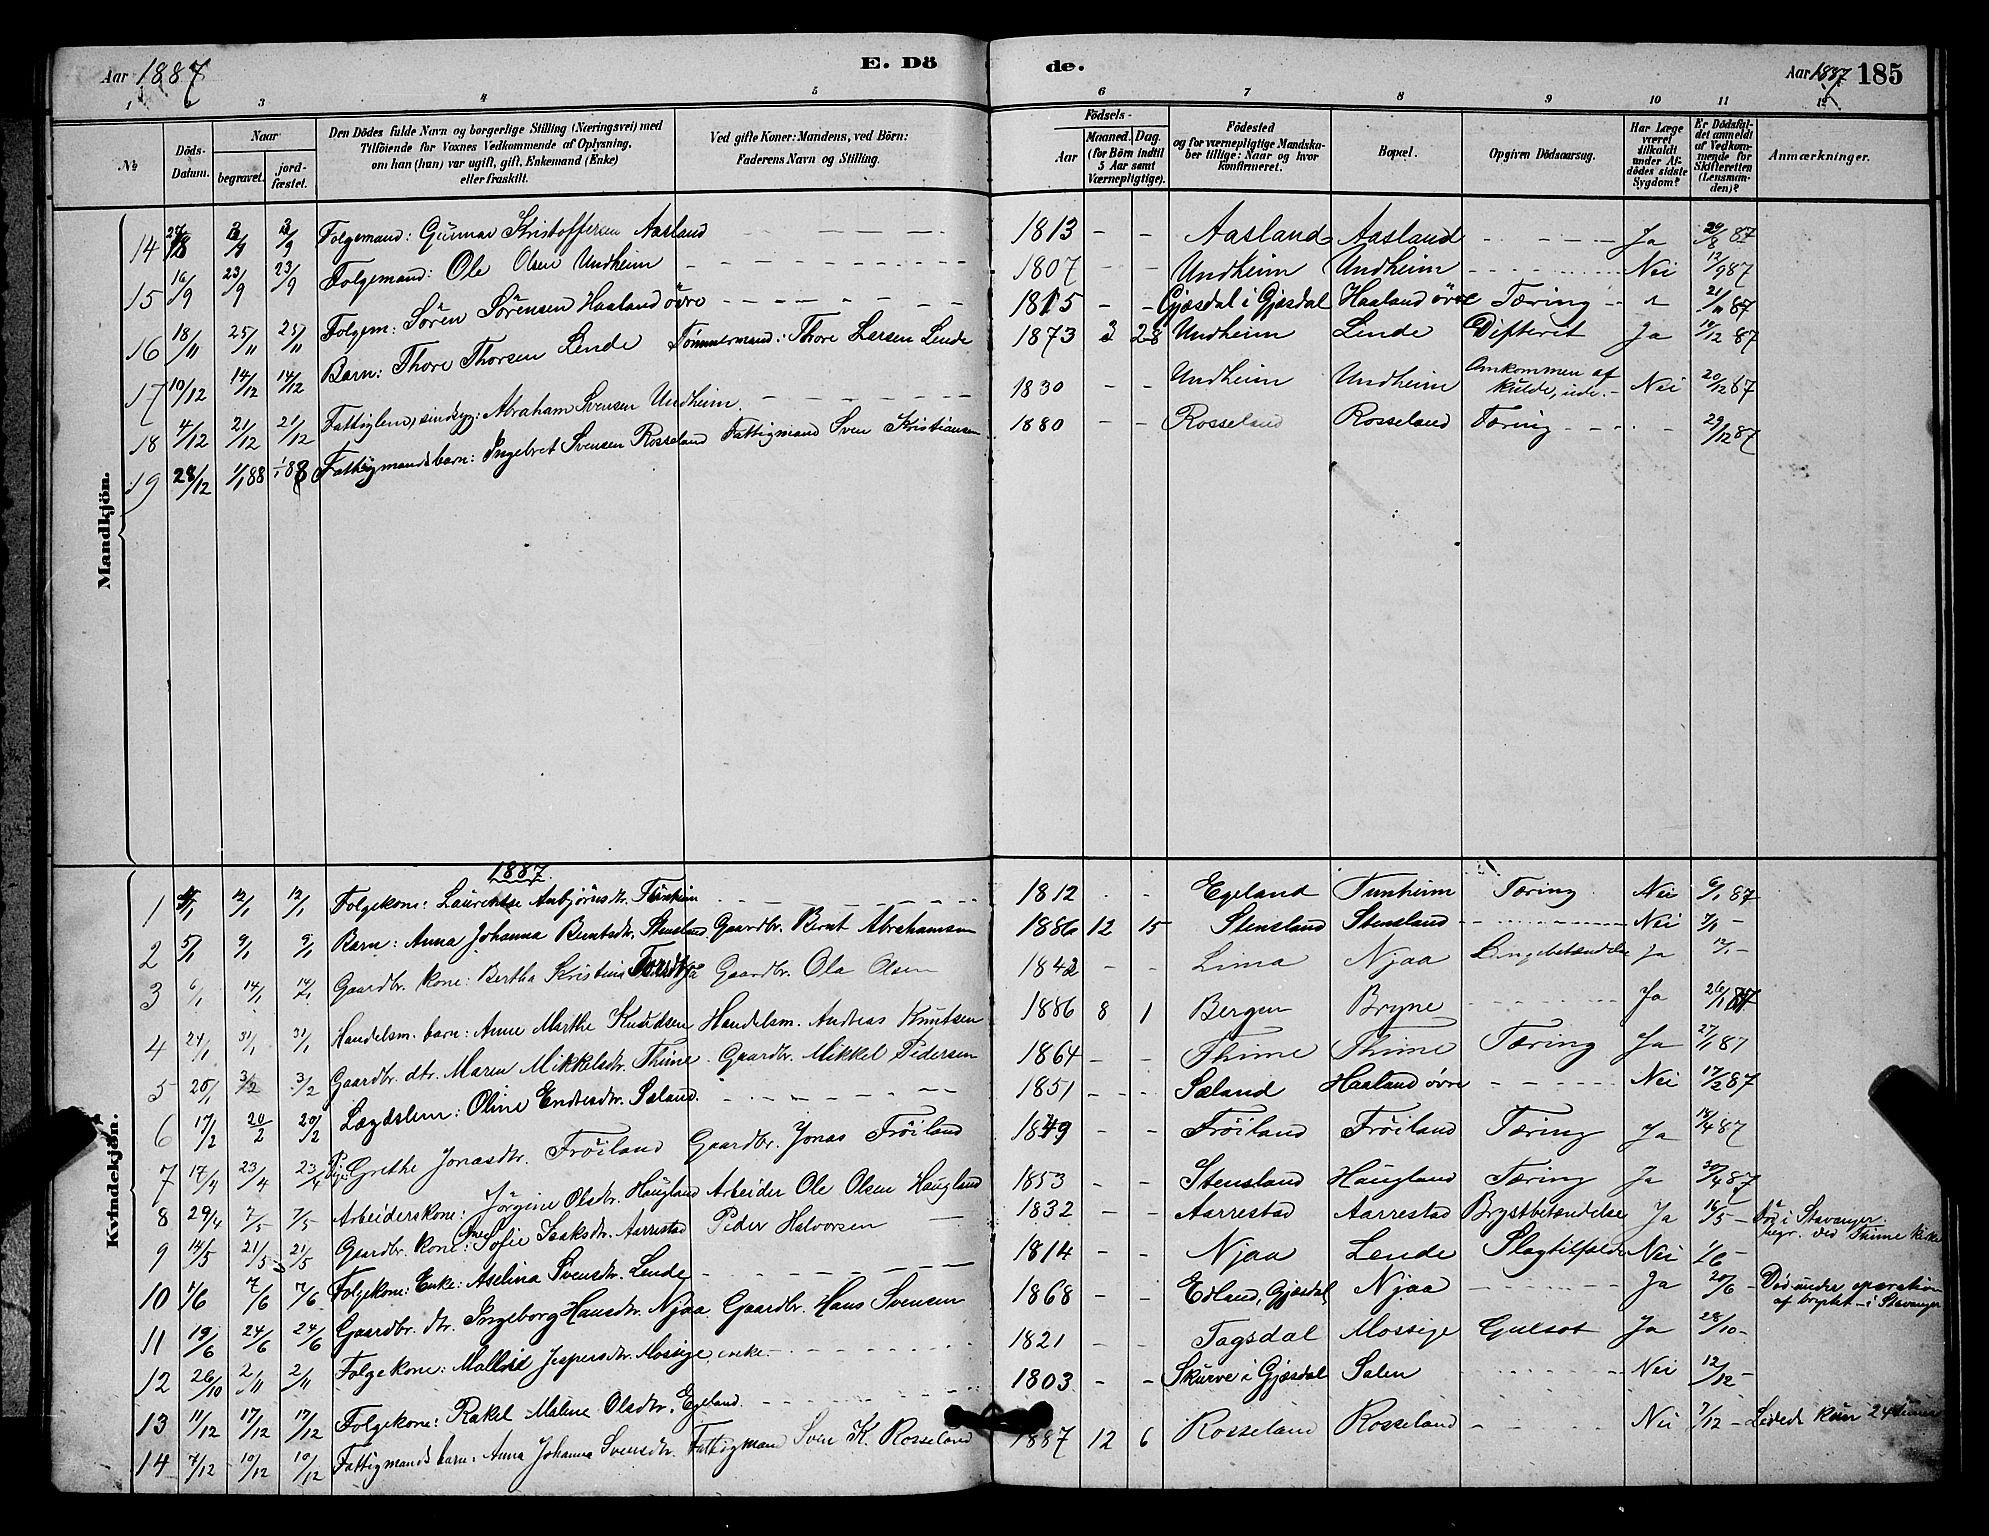 Aar 1887 E. Döde. Aar 1887 185
1 2 3 4 5 6 7 8 9 10 11 12
No.
Döds-Datum.
Naar
begravet.
jordfæstet.
Den Dödes fulde Navn og borgerlige Stilling (Næringsvei) med
Tilföiende for Voxnes Vedkommende af Oplysning,
om han (hun) var ugift, gift, Enkemand (Enke)
eller fraskilt.
Ved gifte Koner: Mandens, ved Börn:
Faderens Navn og Stilling.
Födsels-
Aar
Maaned. Dag.
(for Börn indtil
5 Aar samt
Værnepligtige).
Födested
og for værnepligtige Mandskaber tillige: Naar og hvor
konfirmeret.
Bopæl.
Opgiven Dödsaarsag.
Har Læge
været
tilkaldt
under Afdödes sidste
Sygdom?
Er Dödsfaldet anmeldt
af Vedkommende for
Skifteretten
(Lensmanden)?
Anmærkninger.
Mandkjön.
14 27/8 3/9 3/9 Folgemand: Gunnar Kristoffersen Aasland - - - 1813 - - Aasland Aasland - - - Ja 29/8 87
15 16/9 23/9 23/9 Folgemand: Ole Olsen Undheim - - - 1807 - - Undheim Undheim - - - Nei 17/9 87
16 18/11 25/11 25/11 Folgem: Sören Sörensen Haaland övre - - - 1815 - - Gjæsdal i Gjæsdal Haaland övre Tæring - - 21/11 87
17 10/12 14/12 14/12 Barn: Thore Thorsen Lende Tömmermand: Thore Larsen Lende 1873 3 28 Undheim Lende Difterit Ja 12/12 87
18 4/12 21/12 21/12 Fattiglem, sindsyg: Abraham Svensen Undheim. - - - 1830 - - Undheim Undheim Omkommen af kulde, ude. - Nei 20/12 87
19 28/12 1/1 88 1/1 88 Fattigmandsbarn: Ingebret Svensen Rosseland Fattigmand Sven Kristiansen 1880 - - Rosseland Rosseland Tæring - - - 29/12 87
Kvindekjön.
1887.
1 12/1 12/1 Folgekone: Asbjörnsdtr. Tunheim - - - 1812 - - Egeland Tunheim Tæring Nei 6/1 87
2 5/1 9/1 9/1 Barn: Anna Johanna Berntsdtr. Stensland Gaardbr. Bernt Abrahamsen 1886 12 15 Stensland Stensland - - - Nei 7/1 -
3 6/1 14/1 14/1 Gaardbr. kone: Bertha Kristine Gaardbr. Ola Olsen 1842 - - Lima Njaa Lungebetændelse Ja 12/1 -
4 24/1 31/1 31/1 Handelsm. barn: Anne Marthe Knudsen Handelsm. Andreas Knutsen 1886 8 1 Bergen Bryne - - - Ja 26/1 87
5 25/1 3/2 3/2 Gaardbr. dtr. Maren Mikkelsdtr. Thime. Gaardbr. Mikkel Pedersen 1864 - - Thime Thime Tæring Ja 27/1 87
6 17/2 20/2 20/2 Lægdslem: Oline Endresdtr. Sæland. - - - 1851 - - Sæland Haaland övre - - - Nei 17/2 87
7 14/4 23/4 23/4 Pige Grethe Jonasdtr. Fröiland Gaardbr. Jonas Fröiland 1849 - - Fröiland Fröiland Tæring Ja 18/4 87
8 29/4 7/5 7/5 Arbeiderskone: Jörgine Olsdtr. Haugland Arbeider Ole Olsen Haugland 1853 - - Stensland Haugland Tæring Ja 30/4 87
9 14/5 21/5 21/5 Gaardbr. kone: Sofie Isaksdtr. Aarrestad Peder Halvorsen - 1832 - - Aarrestad Aarrestad Brystbetændelse Ja 16/5 - Död i Stavanger, begr. ved Thime Kirke
10 1/6 7/6 7/6 Folgekone: Enke: Aselina Svensdtr. Lende - - - 1814 - - Njaa Lende Slagtilfælde Nei 1/6 -
11 19/6 24/6 24/6 Gaardbr. dtr. Ingeborg Hansdtr. Njaa. Gaardbr. Hans Svensen 1868 - - Edland, Gjæsdal Njaa - - - Ja 20/6 - Död under operation af brystet - i Stavanger
12 26/10 2/11 2/11 Folgekone: Jespersdtr. Mossige, enke - - - 1821 - - Tagsdal Mossige Gulsot Ja 28/10 -
13 11/12 17/12 17/12 Folgekone: Rakel Malene Olsdtr. Egeland. - - - 1803 - - Skurve i Gjæsdal Salen - - - Nei 12/12 -
14 7/12 10/12 10/12 Fattigmandsbarn: Anna Johanna Svensdtr. Fattigmand Sven K. Rosseland 1887 12 6 Rosseland Rosseland - - Nei 7/12 - Levede kun 24 timer